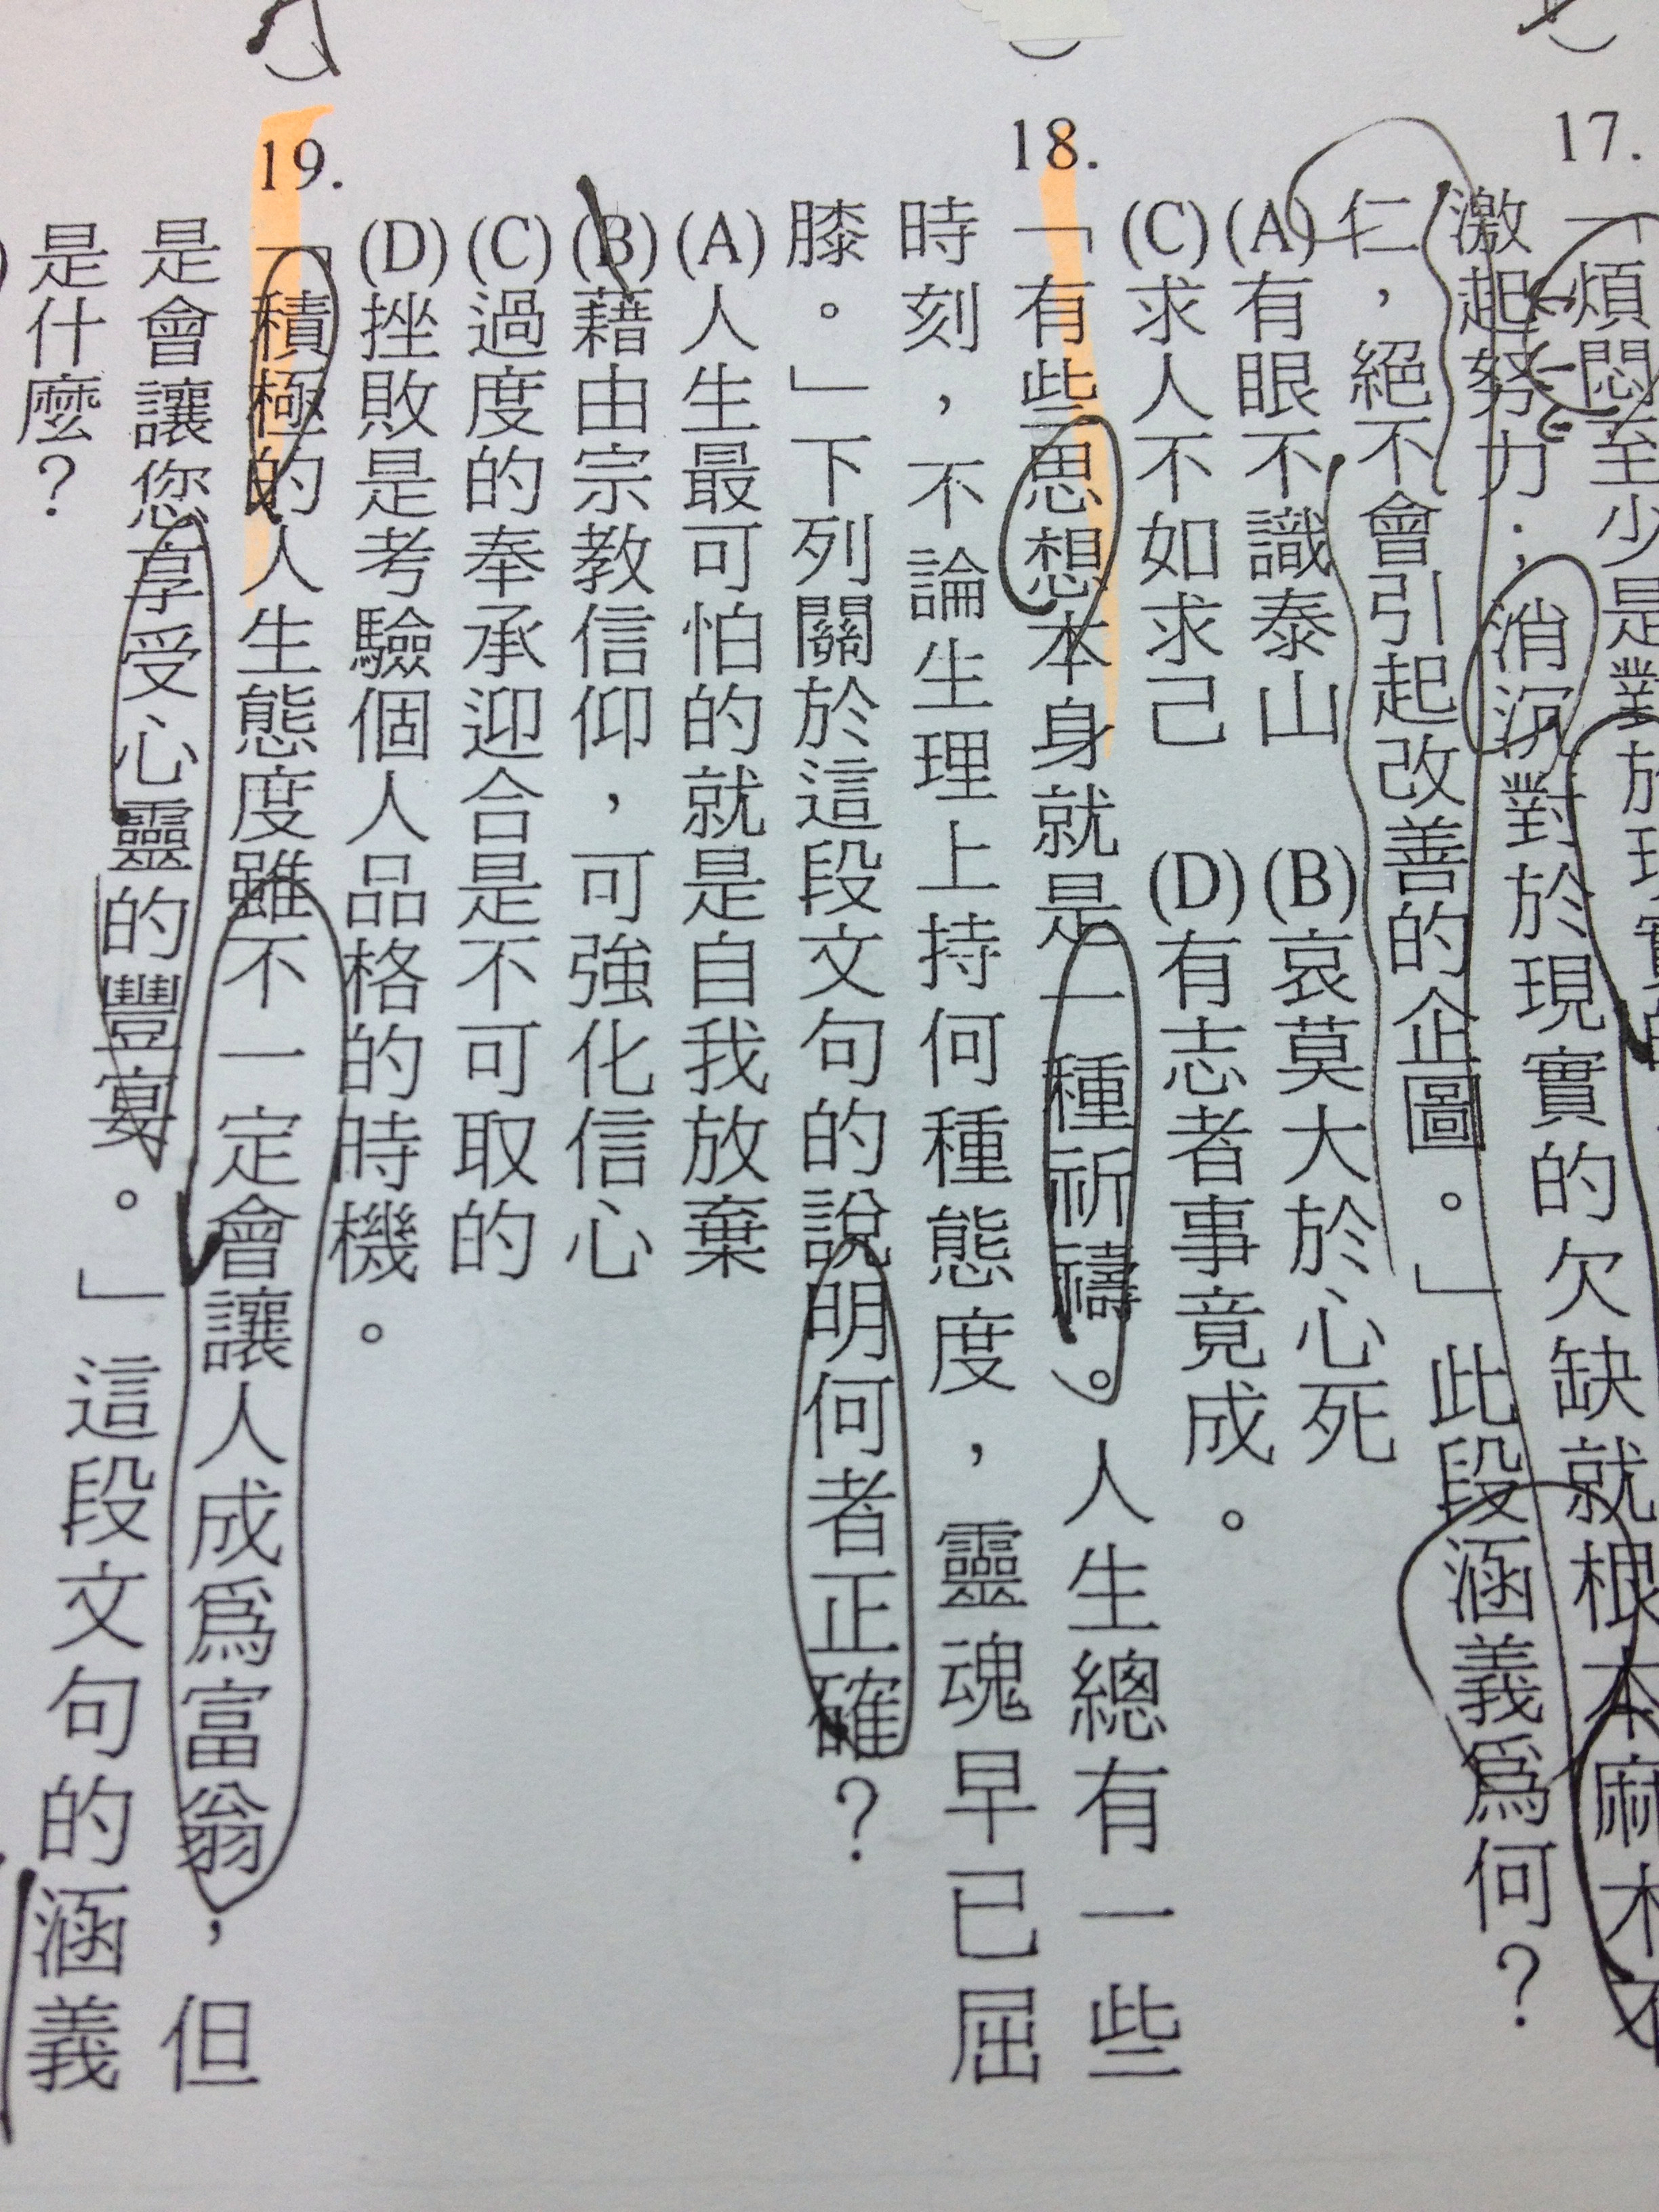 17.「煩悶至少是對於現實
激起努力；消沉對於現實的欠缺就根本麻木不
仁，絕不會引起改善的企圖。」此段涵義爲何？
(A)有眼不識泰山 (B)哀莫大於心死
(C)求人不如求己 (D)有志者事竟成。
18.「有些思想本身就是一種祈禱。人生總有一些
時刻，不論生理上持何種態度，靈魂早已屈
膝。」下列關於這段文句的說明何者正確？
(A)人生最可怕的就是自我放棄
(B)藉由宗教信仰，可強化信心
(C)過度的奉承迎合是不可取的
(D)挫敗是考驗個人品格的時機。
19.「積極的人生態度雖不一定會讓人成爲富翁，但
是會讓您享受心靈的豐宴。」這段文句的涵義
是什麼？